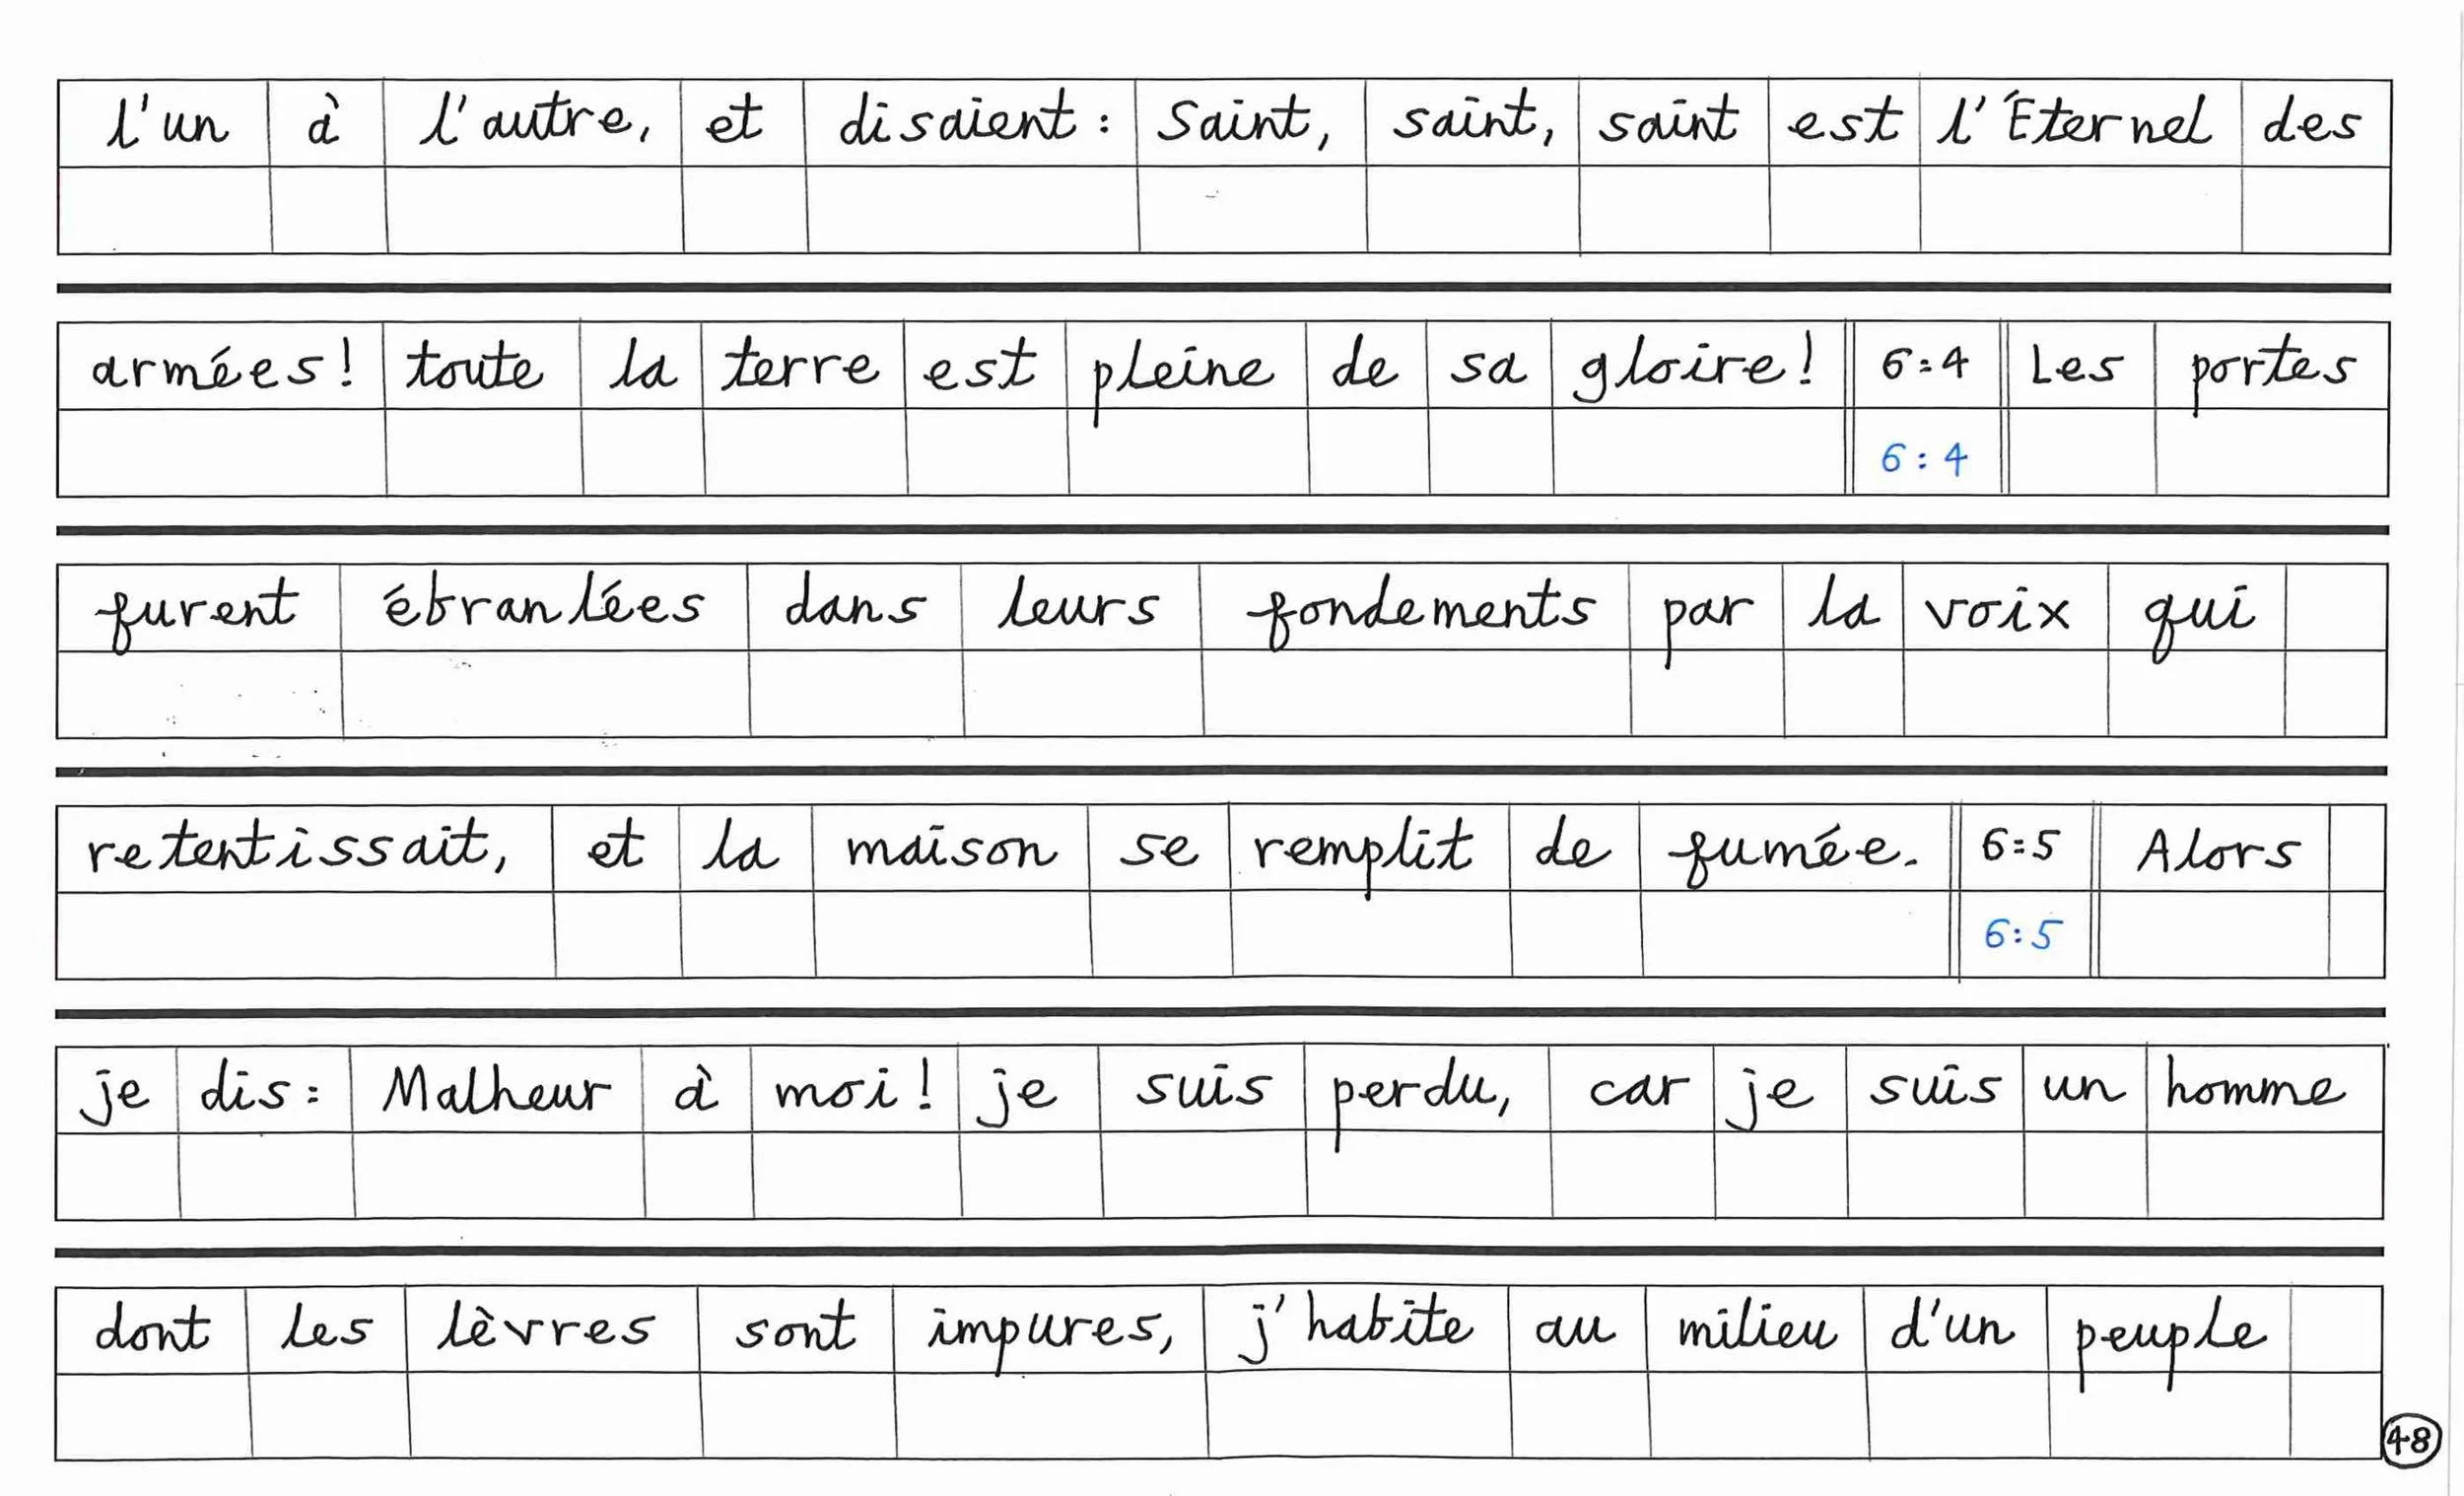 l'un à l'autre, et disaient: Saint, saint, saint est l'Éternel des
armées! toute la terre est pleine de sa gloire! 6:4 Les portes
6:4
furent ébranlées dans leurs fondements par la voix qui
retentissait, et la maison se remplit de fumée. 6:5 Alors
6:5
je dis: Malheur à moi! je suis perdu, car je suis un homme
dont les lèvres sont impures, j'habite au milieu d'un peuple
48